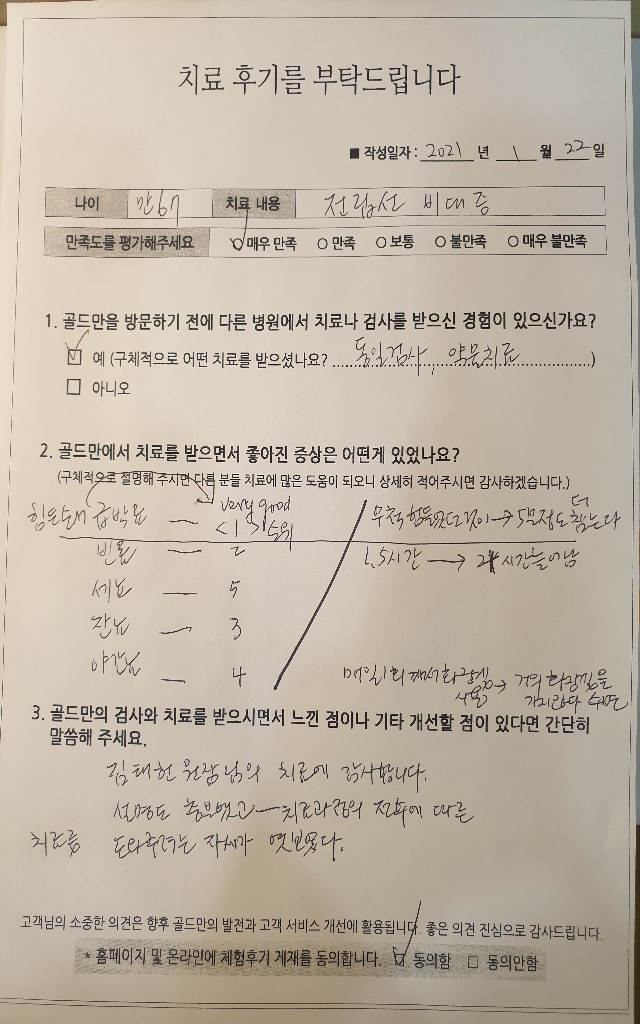 치료 후기를 부탁드립니다
■ 작성일자 : 2021 년 1 월 22 일
나이 만67 치료 내용 전립선 비대증
만족도를 평가해주세요 매우 만족 만족 보통 불만족 매우 불만족
1. 골드만을 방문하기 전에 다른 병원에서 치료나 검사를 받으신 경험이 있으신가요?
예 (구체적으로 어떤 치료를 받으셨나요? 동일검사, 약물치료 )
아니오
2. 골드만에서 치료를 받으면서 좋아진 증상은 어떤게 있었나요?
(구체적으로 설명해 주시면 다른 분들 치료에 많은 도움이 되오니 상세히 적어주시면 감사하겠습니다.)
힘든순서 급박뇨 — very good <1> 순위 무척 힘들었던 것이 → 5분정도 더 참는다
빈뇨 — 2 1.5시간 → 2시간 늘어남
세뇨 — 5
잔뇨 — 3
야간뇨 — 4 매일 1회 깨서 화장실 → 거의 화장실을
사용 가지 않다
3. 골드만의 검사와 치료를 받으시면서 느낀 점이나 기타 개선할 점이 있다면 간단히
말씀해 주세요.
김태헌 원장님의 치료에 감사합니다.
설명도 충분했고 — 치료과정의 전후에 따른
치료를 도와주려는 자세가 엿보였다.
고객님의 소중한 의견은 향후 골드만의 발전과 고객 서비스 개선에 활용됩니다. 좋은 의견 진심으로 감사드립니다.
* 홈페이지 및 온라인에 체험후기 게재를 동의합니다. 동의함 동의안함